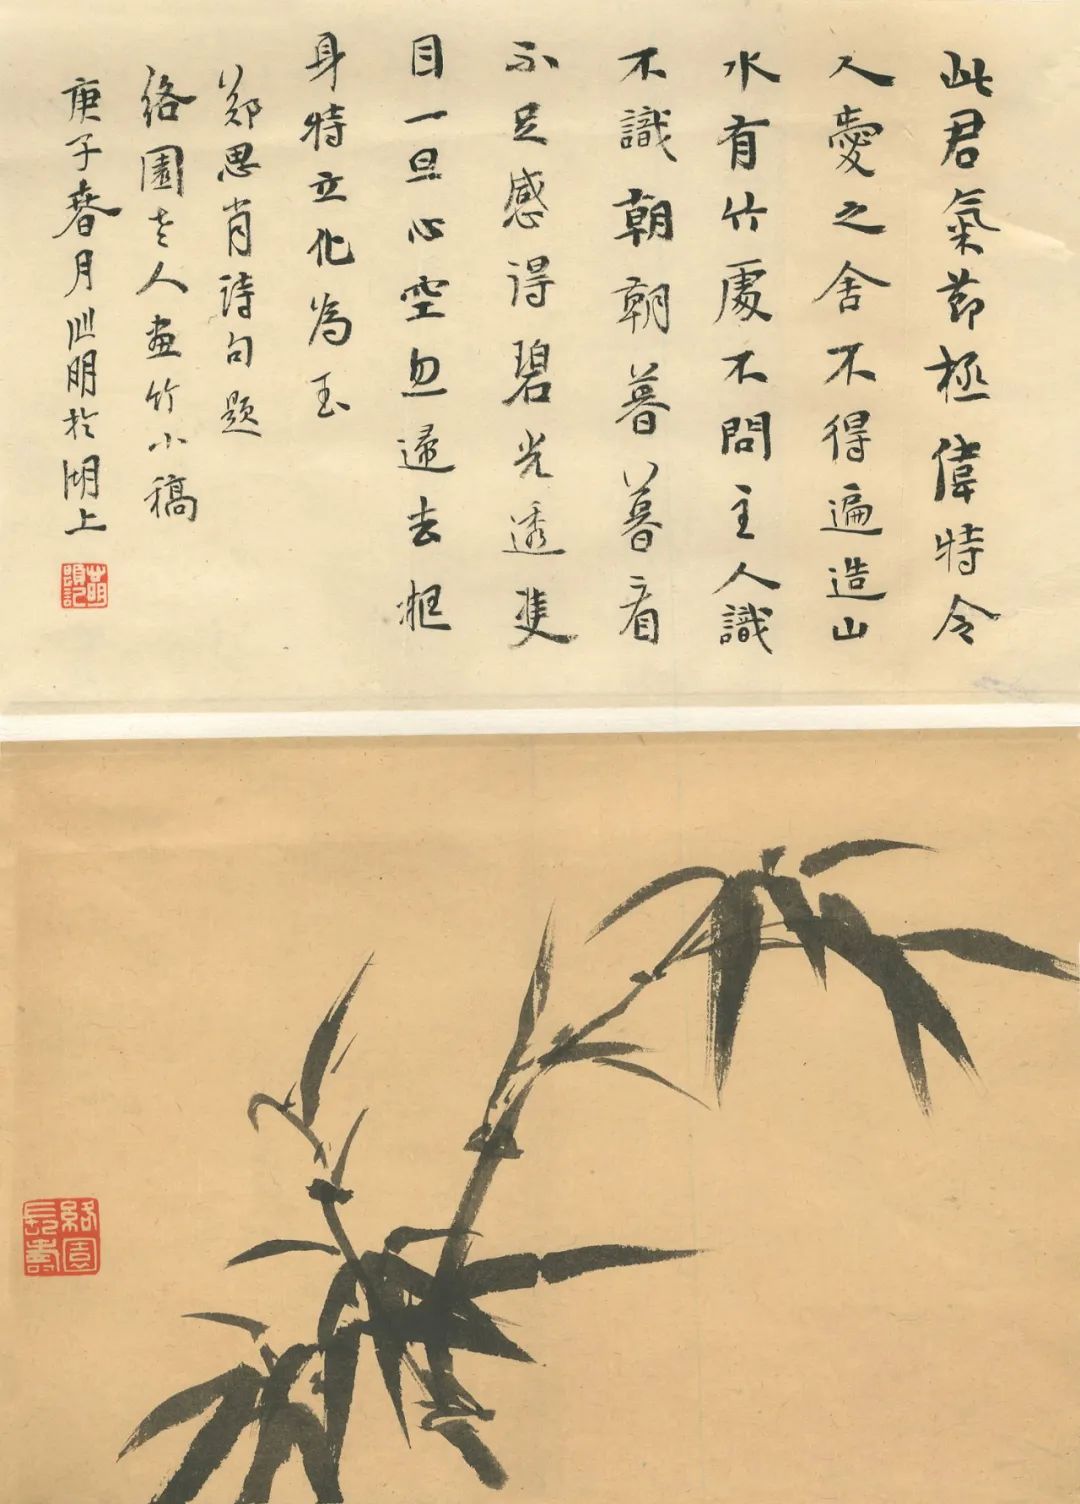 此君氣節極偉特令
人愛之舍不得遍造山
水有竹處不問主人識
不識朝朝暮暮看
不足感得碧光透雙
目一旦心空忽歸去挺
身特立化為玉
鄭思肖詩句題
絡園老人畫竹小稿
庚子春月明於湖上
絡園長壽